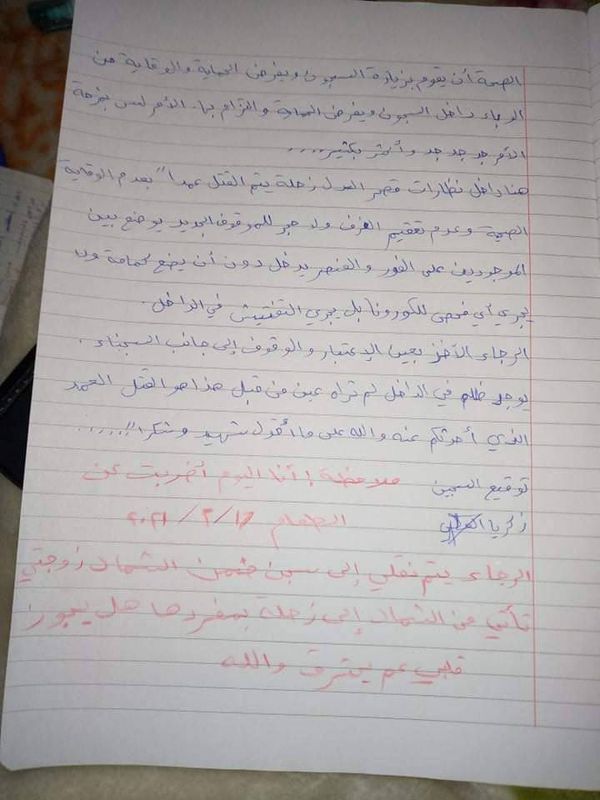 الصحة أن يقوم بزيارة السجون ويفرض الحماية والوقاية من
الوباء داخل السجون ويفرض الحماية والتزام بها. الأمر ليس بمزحة
الأمر جد جد جد وأكثر بكثير....
هنا داخل نظارات قصر العدل زحلة يتم القتل عمداً "بعدم الوقاية
الصحية وعدم تعقيم الغرف ولا حجر للموقوف الجديد يوضع بين
الموجودين على الفور والعنصر يدخل دون أن يضع كمامة ولا
يجري أي فحص للكورونا بل يجري التفتيش في الداخل.
الرجاء الأخذ بعين الإعتبار والوقوف إلى جانب السجناء.
يوجد ظلم في الداخل لم تراه عين من قبل هذا هو القتل العمد
الذي أحدثكم عنه والله على ما أقول شهيد وشكراً"......
توقيع السجين ملاحظة إ أنا اليوم أضربت عن
زكريا الطعام ٢٠٢١/٢/١٦
الرجاء يتم نقلي إلى سجن ضمن الشمال زوجتي
تأتي من الشمال إلى زحلة بمفردها هل يجوز
قلبي عم يحترق والله